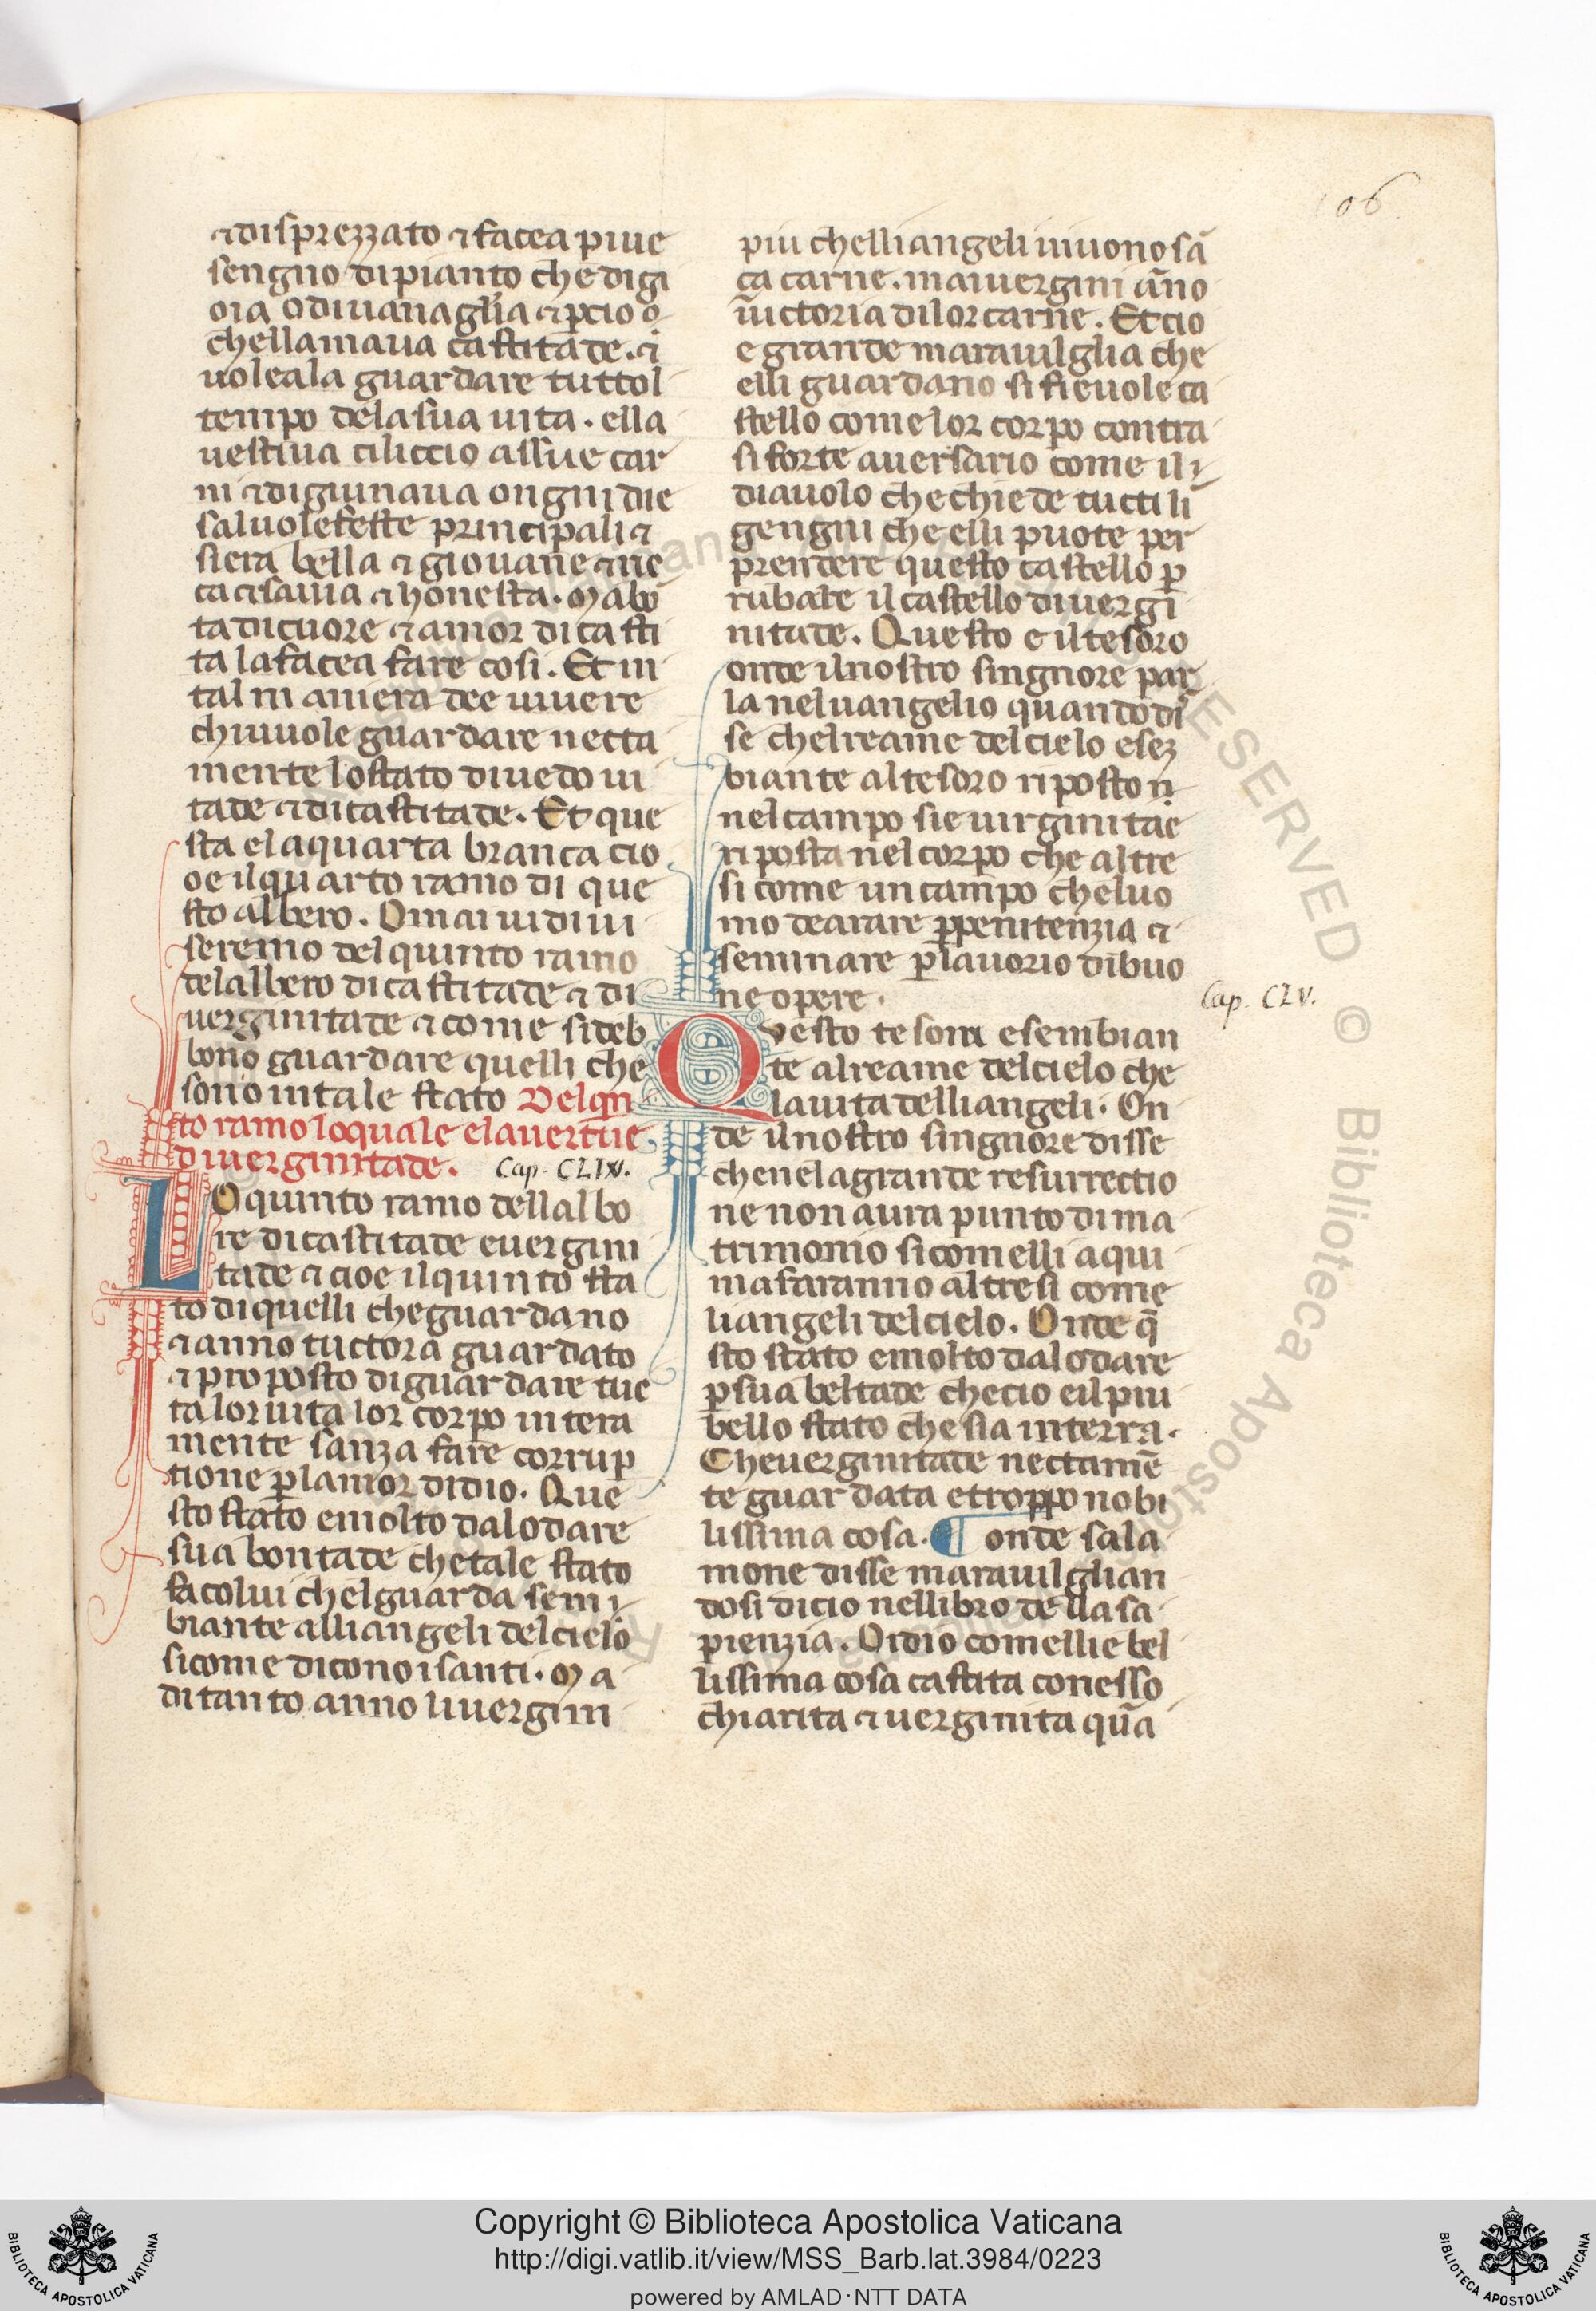 106
⁊disprezzato ⁊facea piue
sengno dipianto che digi
oia odiuanaglia ⁊ꝑcio o
chellamaua castitade. ⁊
uoleala guardare tuttol
tempo delasua uita. ella
uestiua ciliccio assue car
ni ⁊digiunaua ongni die
saluolefeste principali ⁊
siera bella ⁊ giouane ⁊ric
ca ⁊sauia ⁊ honesta. Mabō
tadicuore ⁊ amor dicasti
ta lafacea fare cosi. Et in
tal maniera dee uiuere
chiuuole guardare netta
mente lostato diuedoui
tade ⁊dicastitade. Et que
sta elaquarta branca cio
oe ilquarto ramo di que
sto albero. Omai uidiui
seremo delquinto ramo
delalbero dicastitade ⁊ di
uerginitade ⁊ come sideb
bono guardare quelli che
sono intale stato Delqin
to ramo loquale elauertue
diuerginitade. Cap. CLIV.
LO quinto ramo dellalbo
re dicastitade euergini
tade ⁊ cioe ilquinto sta
to diquelli cheguardano
⁊ anno tuctora guardato
⁊ proposto diguardare tuc
ta loruita lor corpo intera
mente sanza fare corrup
tione ꝑlamor didio. Que
sto stato emolto dalodare
sua bontade chetale stato
facolui chelguarda sem
biante alliangeli delcielo
sicome dicono isanti. Ma
ditanto anno liuergini
piu chelliangeli uiuono sā
ça carne. maiuergini āno
uictoria dilor carne. Et cio
e grande marauilglia che
elli guardano si fieuole ca
stello come lor corpo contra
siforte auersario come il
diauolo che chiede tucti li
gengni che elli puote per
prendere questo castello ꝑ
rubare il castello diuergi
nitade. Questo e iltesoro
onde ilnostro singnore par
la neluangelio quando di
se chelreame delcielo esez
biante altesoro riposto n
nelcampo sie uirginitae
riposta nelcorpo che altre
si come un campo cheluo
mo dearare ꝑpenitenzia ⁊
seminare ꝑlauorio dibuo
ne opere.
Cap. CLV.
Questo tesoro esembian
te alreame delcielo che
lauita delliangeli. On
de ilnostro singnore disse
chenelagrande resurrectio
ne non aura punto dima
trimonio sicomelli a qui
masaranno altresi come
liangeli delcielo. Onde q̄
sto stato emolto dalodare
ꝑsua beltade checio eilpiu
bello stato che sia interra.
Cheuerginitade nectamē
te guardata etroppo nobi
lissima cosa. ¶ onde sala
mone disse marauilglian
dosi dicio nellibro della sa
pienzia. Odio comellie bel
lissima cosa castita conesso
chiarita ⁊ uerginita qūa
Copyright © Biblioteca Apostolica Vaticana
http://digi.vatlib.it/view/MSS_Barb.lat.3984/0223
powered by AMLAD·NTT DATA
BIBLIOTECA APOSTOLICA VATICANA
BIBLIOTECA APOSTOLICA VATICANA